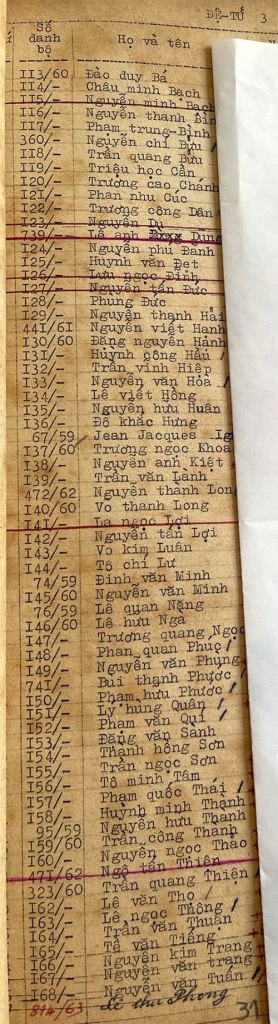 ĐỆ-TỨ 3
Số danh bộ Họ và tên
II3/60 Đào duy Bá
II4/- Châu minh Bach
II5/- Nguyễn minh Bach
II6/- Nguyễn thanh Bìn
II7/- Phạm trung-Bình
360/- Nguyễn chí Bửu
II8/- Trần quang Bửu
II9/- Triệu học Cẩn
I20/- Trương cao Chánh
I2I/- Phan nhu Cúc
I22/- Trương công Dân
I23/- Nguyễn Dụ
739/- Lê anh Dung
I24/- Nguyễn phú Danh
I25/- Huỳnh văn Đẹt
I26/- Lưu ngọc Định
I27/- Nguyễn tấn Đức
I28/- Phùng Đức
I29/- Nguyễn thạnh Hải
44I/6I Nguyễn viết Hanh
I30/60 Đặng nguyên Hảnh
I3I/- Huỳnh công Hầu
I32/- Trần vinh Hiệp
I33/- Nguyễn văn Hòa
I34/- Lê viết Hồng
I35/- Nguyễn hưu Huân
I36/- Đỗ khắc Hưng
67/59 Jean Jacques Ig
I37/60 Trương ngọc Khoa
I38/- Nguyễn anh Kiệt
I39/- Trần văn Lành
472/62 Nguyễn thành Lon
I40/60 Vo thanh Long
I4I/- La ngọc Lợi
I42/- Nguyễn tấn Lợi
I43/- Vo kim Luân
I44/- Tô chí Lư
74/59 Đinh văn Minh
I45/60 Nguyễn văn Minh
76/59 Lê quan Năng
I46/60 Lê hưu Nga
I47/- Trương quang Ngọc
I48/- Phan quan Phuc
I49/- Nguyễn văn Phung
74I/- Bui thạnh Phước
I50/- Phạm hưu Phước
I5I/- Lý hùng Quân
I52/- Pham văn Quí
I53/- Đặng văn Sanh
I54/- Thạnh hồng Sơn
I55/- Trần ngọc Sơn
I56/- Tô minh Tâm
I57/- Phạm quốc Thái
I58/- Huỳnh minh Thạnh
95/59 Nguyễn hưu Thanh
I59/60 Trần công Thanh
I60/- Nguyễn ngọc Thảo
47I/62 Ngô tấn Thiên
323/60 Trần quang Thiện
I62/- Lê văn Thọ
I63/- Lê ngọc Thông
I64/- Trần văn Thuấn
I65/- Tạ văn Tiếng
I66/- Nguyễn kim Trang
I67/- Nguyễn văn trang
I68/- Nguyễn văn Tuấn
874/63 Lê thu Phong
31